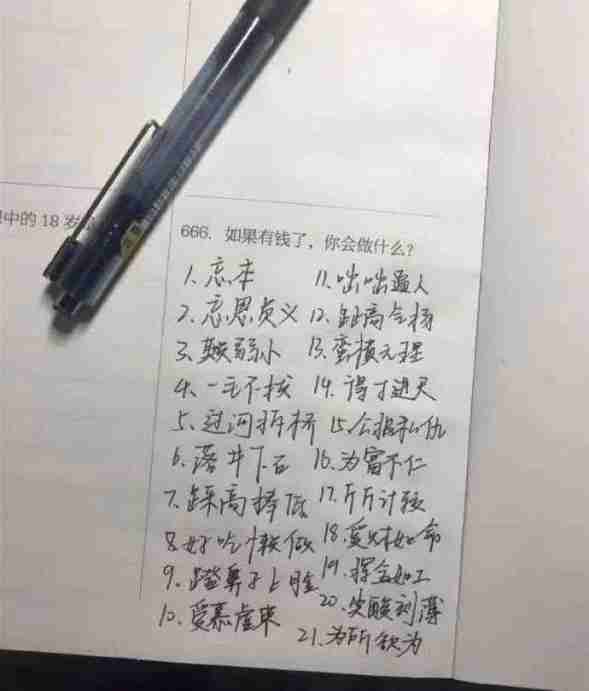 中的 18 岁
666. 如果有钱了，你会做什么？
1. 忘本
2. 忘恩负义
3. 欺弱小
4. 一毛不拔
5. 过河拆桥
6. 落井下石
7. 踩高捧低
8. 好吃懒做
9. 蹬鼻子上脸
10. 爱慕虚荣
11. 咄咄逼人
12. 趾高气扬
13. 蛮横无理
14. 得寸进尺
15. 公报私仇
16. 为富不仁
17. 斤斤计较
18. 爱财如命
19. 挥金如土
20. 尖酸刻薄
21. 为所欲为